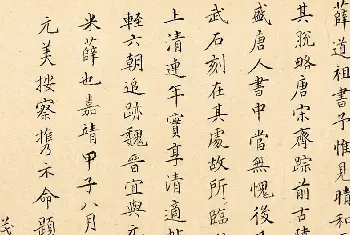 薛道祖書予惟見晴和
其脫略唐宋齊踪前古
盛唐人書中當無愧後
武石刻在其處故所臨
上清連年實享清適
輕六朝追跡魏晉宜與
米薛也嘉靖甲子八月
元美按察携示命題